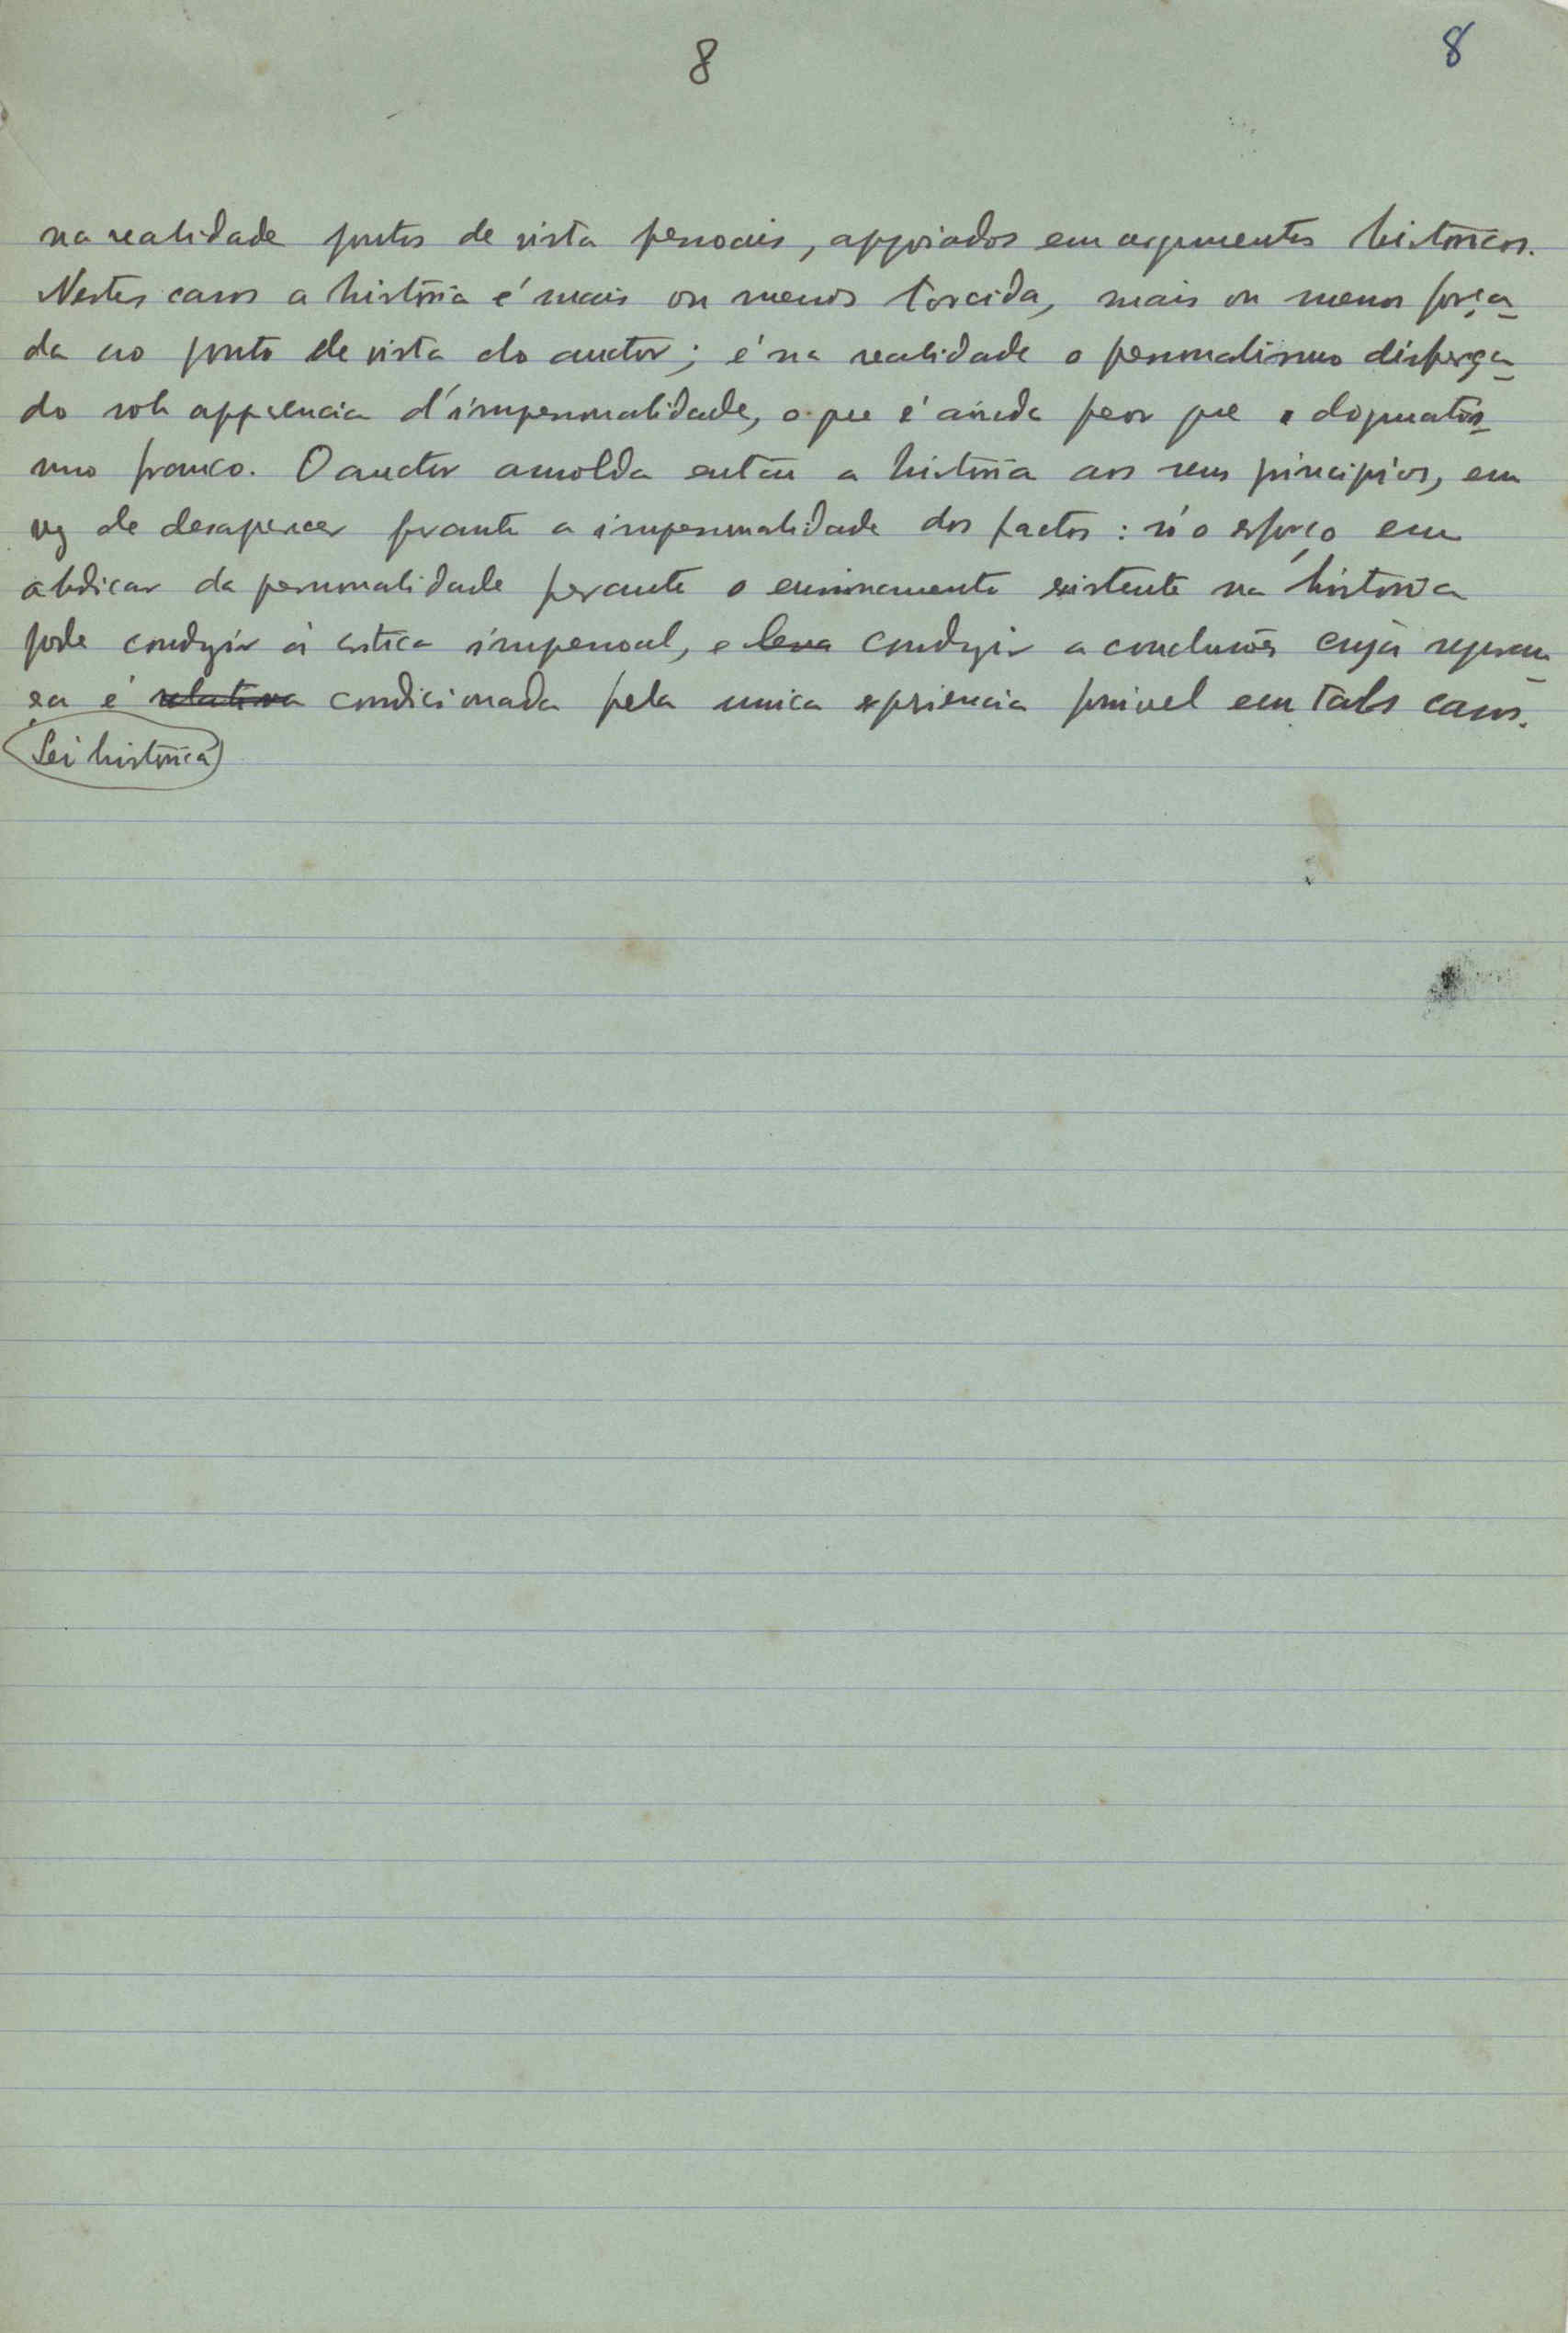 8 8
na realidade pontos de vista pessoais, appoiados em argumentos históricos.
Nestes casos a história é mais ou menos torcida, mais ou menos força-
da ao ponto de vista do auctor; é na realidade o personalismo disfarça-
do sob apparencia d'impersonalidade, o que é ainda peor que o dogmatis-
mo franco. O auctor amolda então a história aos seus principios, em
vez de desaparecer perante a impersonalidade dos factos: só o esforço em
abdicar da personalidade perante o ensinamento existente na história
pode conduzir á critica impessoal, e leva conduzir a conclusões cuja seguran-
ça é relativa condicionada pela unica experiencia possivel em taes casos.
Lei histórica